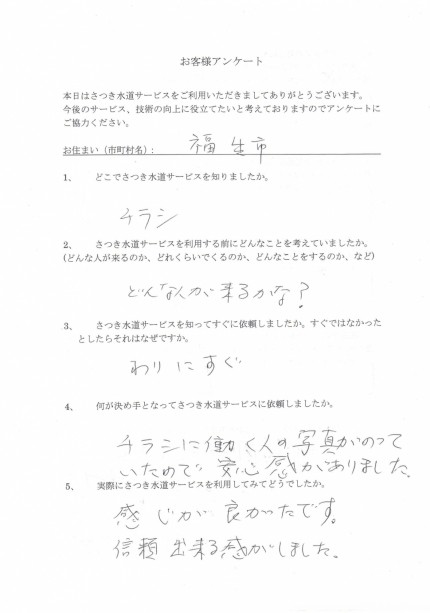 お客様アンケート
本日はさつき水道サービスをご利用いただきましてありがとうございます。
今後のサービス、技術の向上に役立てたいと考えておりますのでアンケートに
ご協力ください。
お住まい（市町村名）： 福生市
1、 どこでさつき水道サービスを知りましたか。
チラシ
2、 さつき水道サービスを利用する前にどんなことを考えていましたか。
(どんな人が来るのか、どれくらいでくるのか、どんなことをするのか、など)
どんな人が来るかな？
3、 さつき水道サービスを知ってすぐに依頼しましたか。すぐではなかった
としたらそれはなぜですか。
わりにすぐ
4、 何が決め手となってさつき水道サービスに依頼しましたか。
チラシに働く人の写真がのって
いたので安心感がありました。
5、 実際にさつき水道サービスを利用してみてどうでしたか。
感じが良かったです。
信頼出来る感がしました。